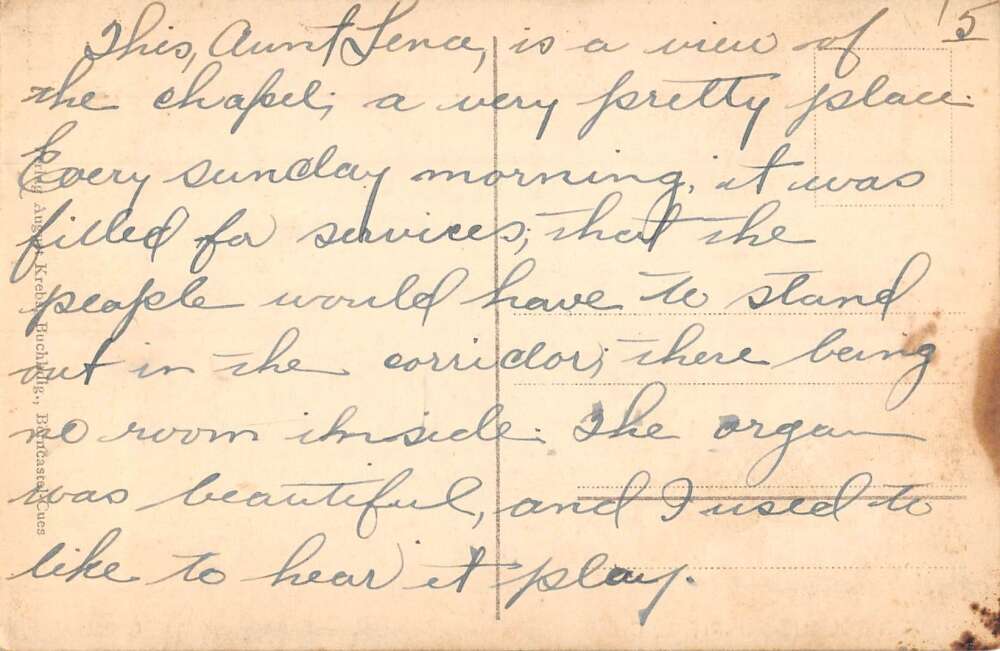 5
This, Aunt Lena, is a view of
the chapel; a very pretty place.
Every sunday morning, it was
filled for services; that the
people would have to stand
out in the corridor; there being
no room inside. The organ
was beautiful, and I used to
like to hear it play.
Verlag August Krebs, Buchhdlg., Berncastel-Cues